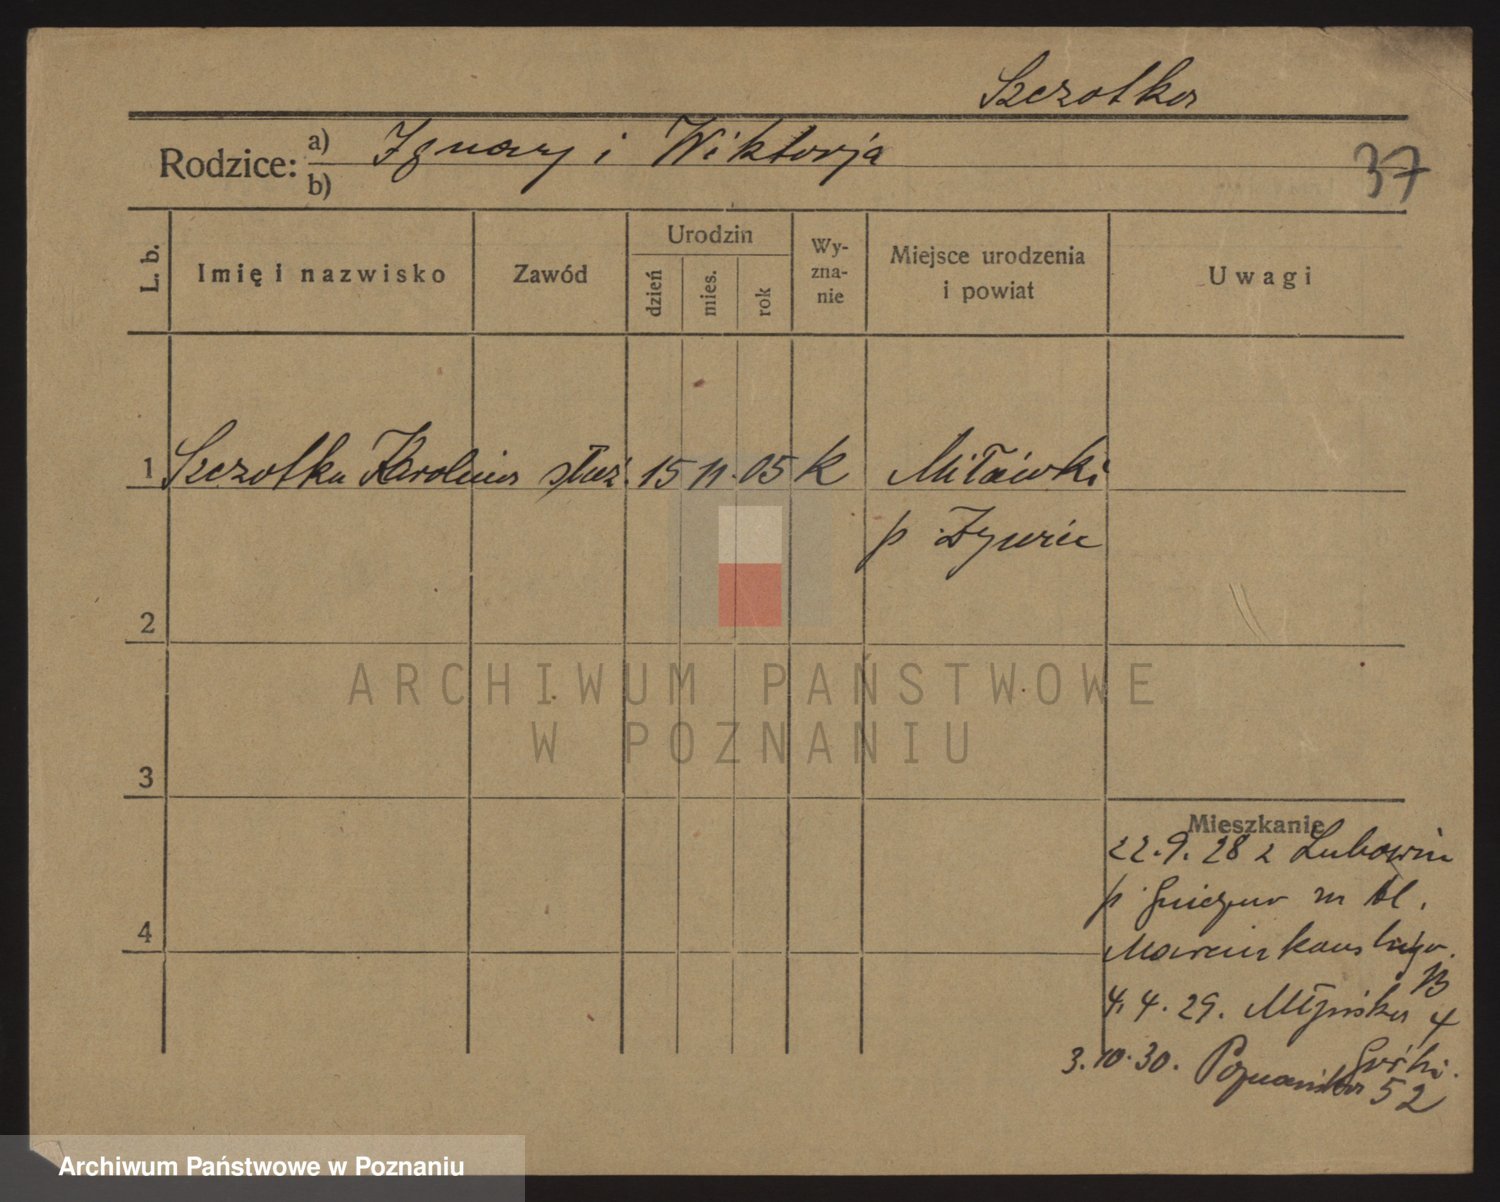 Szczotka
Rodzice: a) Ignacy i Wiktorja
b)
37
L. b.
Imię i nazwisko
Zawód
Urodzin
dzień
mies.
rok
Wy-
zna-
nie
Miejsce urodzenia
i powiat
Uwagi
1 Szczotka Karolina służ. 15 11. 05 k Miłówki
p Żywiec
2
3
4
Mieszkanie
22.9.28 z Lubowin
p Gniezno m Al.
Marcinkowskiego.
13
4.4.29. Młyńska 4
3.10.30. Poznańska 52
ARCHIWUM PAŃSTWOWE
W POZNANIU
Archiwum Państwowe w Poznaniu